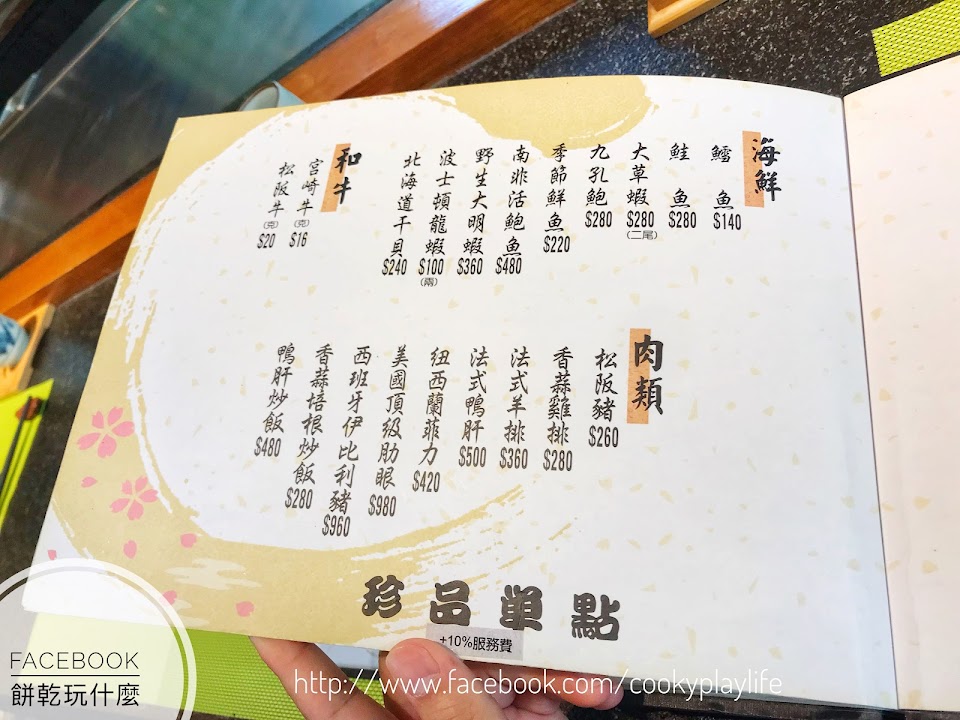 海鮮
鱈魚 $140
鮭魚 $280
大草蝦 $280
(二尾)
九孔鮑 $280
季節鮮魚 $220
南非活鮑魚 $480
野生大明蝦 $360
波士頓龍蝦 $100
(兩)
北海道干貝 $240
和牛
宮崎牛(克) $16
松阪牛(克) $20
肉類
松阪豬 $260
香蒜雞排 $280
法式羊排 $360
法式鴨肝 $500
紐西蘭菲力 $420
美國頂級肋眼 $980
西班牙伊比利豬 $960
香蒜培根炒飯 $280
鴨肝炒飯 $480
珍品單點
+10%服務費
FACEBOOK
餅乾玩什麼
http://www.facebook.com/cookyplaylife